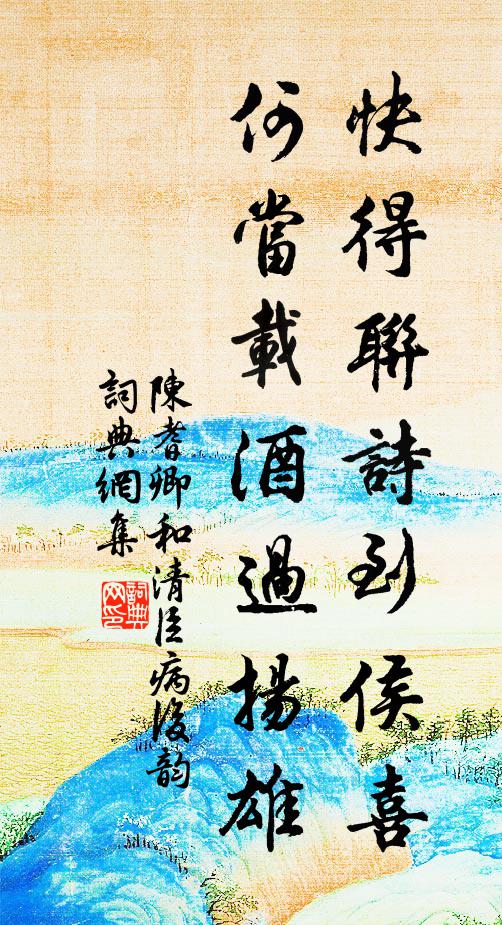 快得聯詩到侯喜
何當載酒過揚雄
陳耆卿和清臣病後韵
詞典網集
詞典
网印